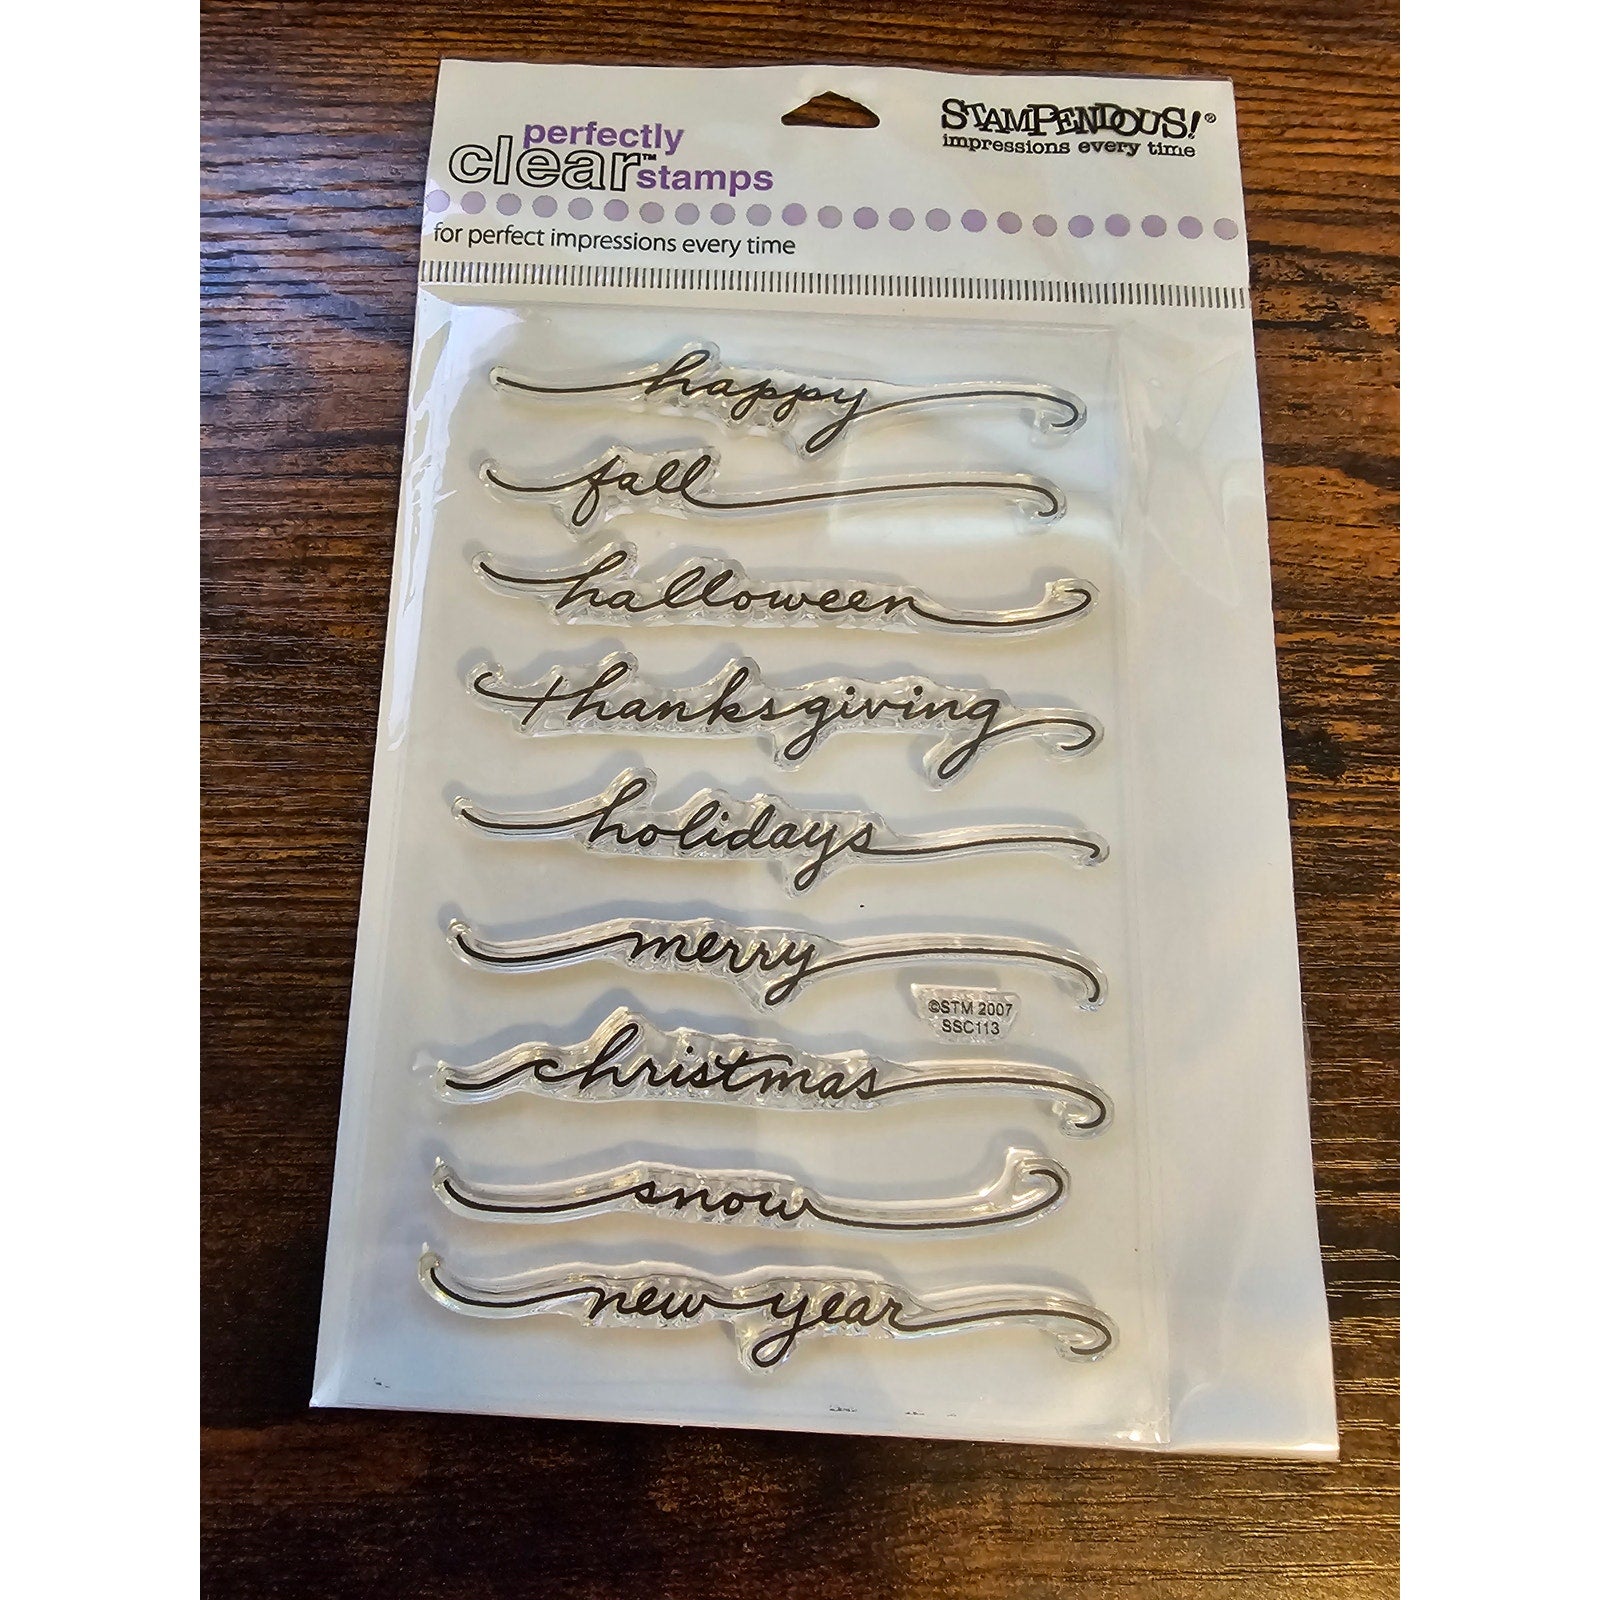 perfectly
clear™ stamps
STAMPENDOUS!®
impressions every time
for perfect impressions every time
happy
fall
halloween
thanksgiving
holidays
merry
©STM 2007
SSC113
christmas
snow
new year